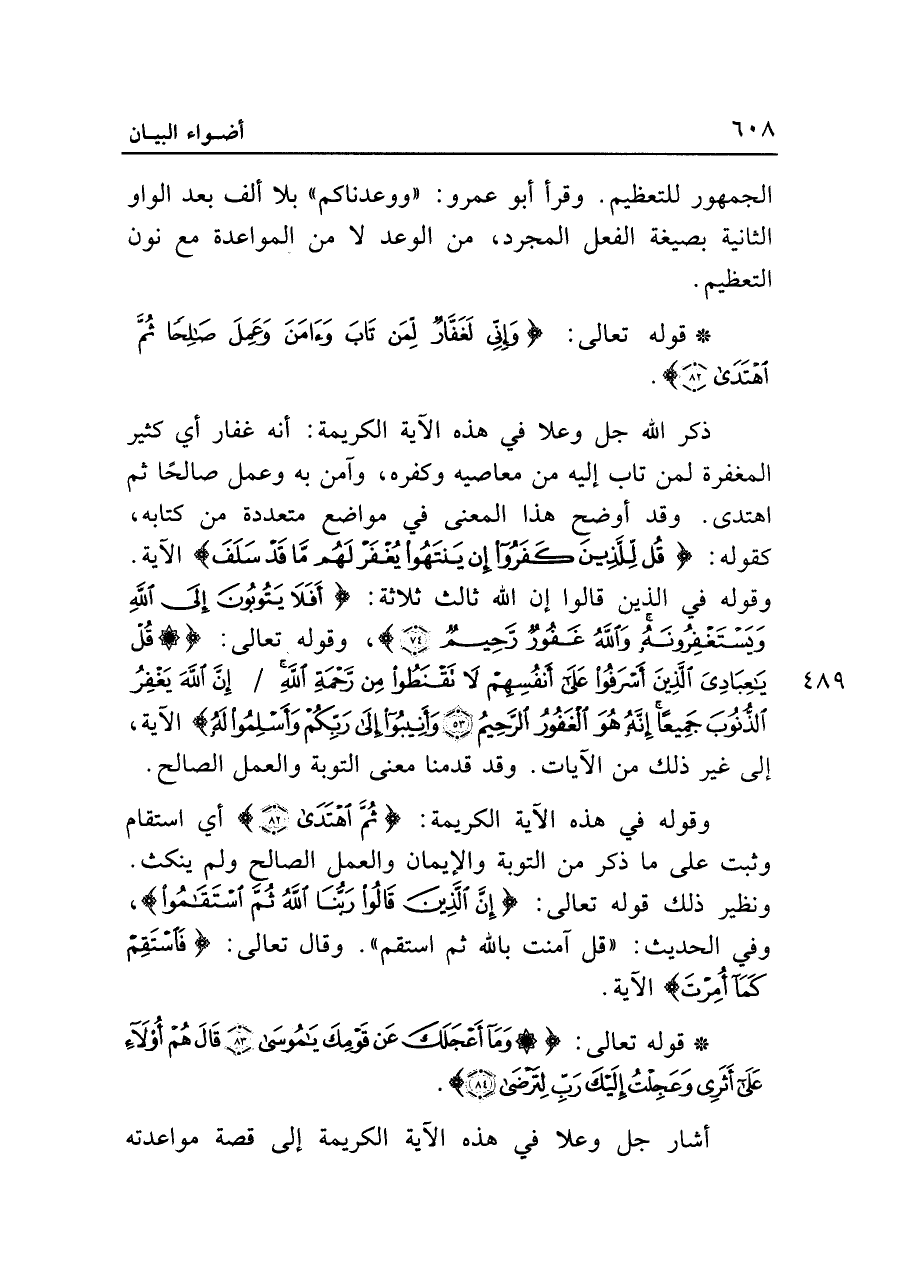 ٦٠٨ أضواء البيان
الجمهور للتعظيم. وقرأ أبو عمرو: «ووعدناكم» بلا ألف بعد الواو
الثانية بصيغة الفعل المجرد، من الوعد لا من المواعدة مع نون
التعظيم.
* قوله تعالى: ﴿وَإِنِّي لَغَفَّارٌ لِّمَن تَابَ وَءَامَنَ وَعَمِلَ صَٰلِحًا ثُمَّ
ٱهْتَدَىٰ ٨٢﴾.
ذكر الله جل وعلا في هذه الآية الكريمة: أنه غفار أي كثير
المغفرة لمن تاب إليه من معاصيه وكفره، وآمن به وعمل صالحًا ثم
اهتدى. وقد أوضح هذا المعنى في مواضع متعددة من كتابه،
كقوله: ﴿قُل لِّلَّذِينَ كَفَرُوٓا۟ إِن يَنتَهُوا۟ يُغْفَرْ لَهُم مَّا قَدْ سَلَفَ﴾ الآية.
وقوله في الذين قالوا إن الله ثالث ثلاثة: ﴿أَفَلَا يَتُوبُونَ إِلَى ٱللَّهِ
وَيَسْتَغْفِرُونَهُۥ وَٱللَّهُ غَفُورٌ رَّحِيمٌ ٧٤﴾، وقوله تعالى: ﴿۞ قُلْ
يَٰعِبَادِىَ ٱلَّذِينَ أَسْرَفُوا۟ عَلَىٰٓ أَنفُسِهِمْ لَا تَقْنَطُوا۟ مِن رَّحْمَةِ ٱللَّهِ / إِنَّ ٱللَّهَ يَغْفِرُ ٤٨٩
ٱلذُّنُوبَ جَمِيعًا إِنَّهُۥ هُوَ ٱلْغَفُورُ ٱلرَّحِيمُ ٥٣ وَأَنِيبُوٓا۟ إِلَىٰ رَبِّكُمْ وَأَسْلِمُوا۟ لَهُۥ﴾ الآية،
إلى غير ذلك من الآيات. وقد قدمنا معنى التوبة والعمل الصالح.
وقوله في هذه الآية الكريمة: ﴿ثُمَّ ٱهْتَدَىٰ ٨٢﴾ أي استقام
وثبت على ما ذكر من التوبة والإيمان والعمل الصالح ولم ينكث.
ونظير ذلك قوله تعالى: ﴿إِنَّ ٱلَّذِينَ قَالُوا۟ رَبُّنَا ٱللَّهُ ثُمَّ ٱسْتَقَٰمُوا۟﴾،
وفي الحديث: «قل آمنت بالله ثم استقم». وقال تعالى: ﴿فَٱسْتَقِمْ
كَمَآ أُمِرْتَ﴾ الآية.
* قوله تعالى: ﴿۞ وَمَآ أَعْجَلَكَ عَن قَوْمِكَ يَٰمُوسَىٰ ٨٣ قَالَ هُمْ أُو۟لَآءِ
عَلَىٰٓ أَثَرِى وَعَجِلْتُ إِلَيْكَ رَبِّ لِتَرْضَىٰ ٨٤﴾.
أشار جل وعلا في هذه الآية الكريمة إلى قصة مواعدته